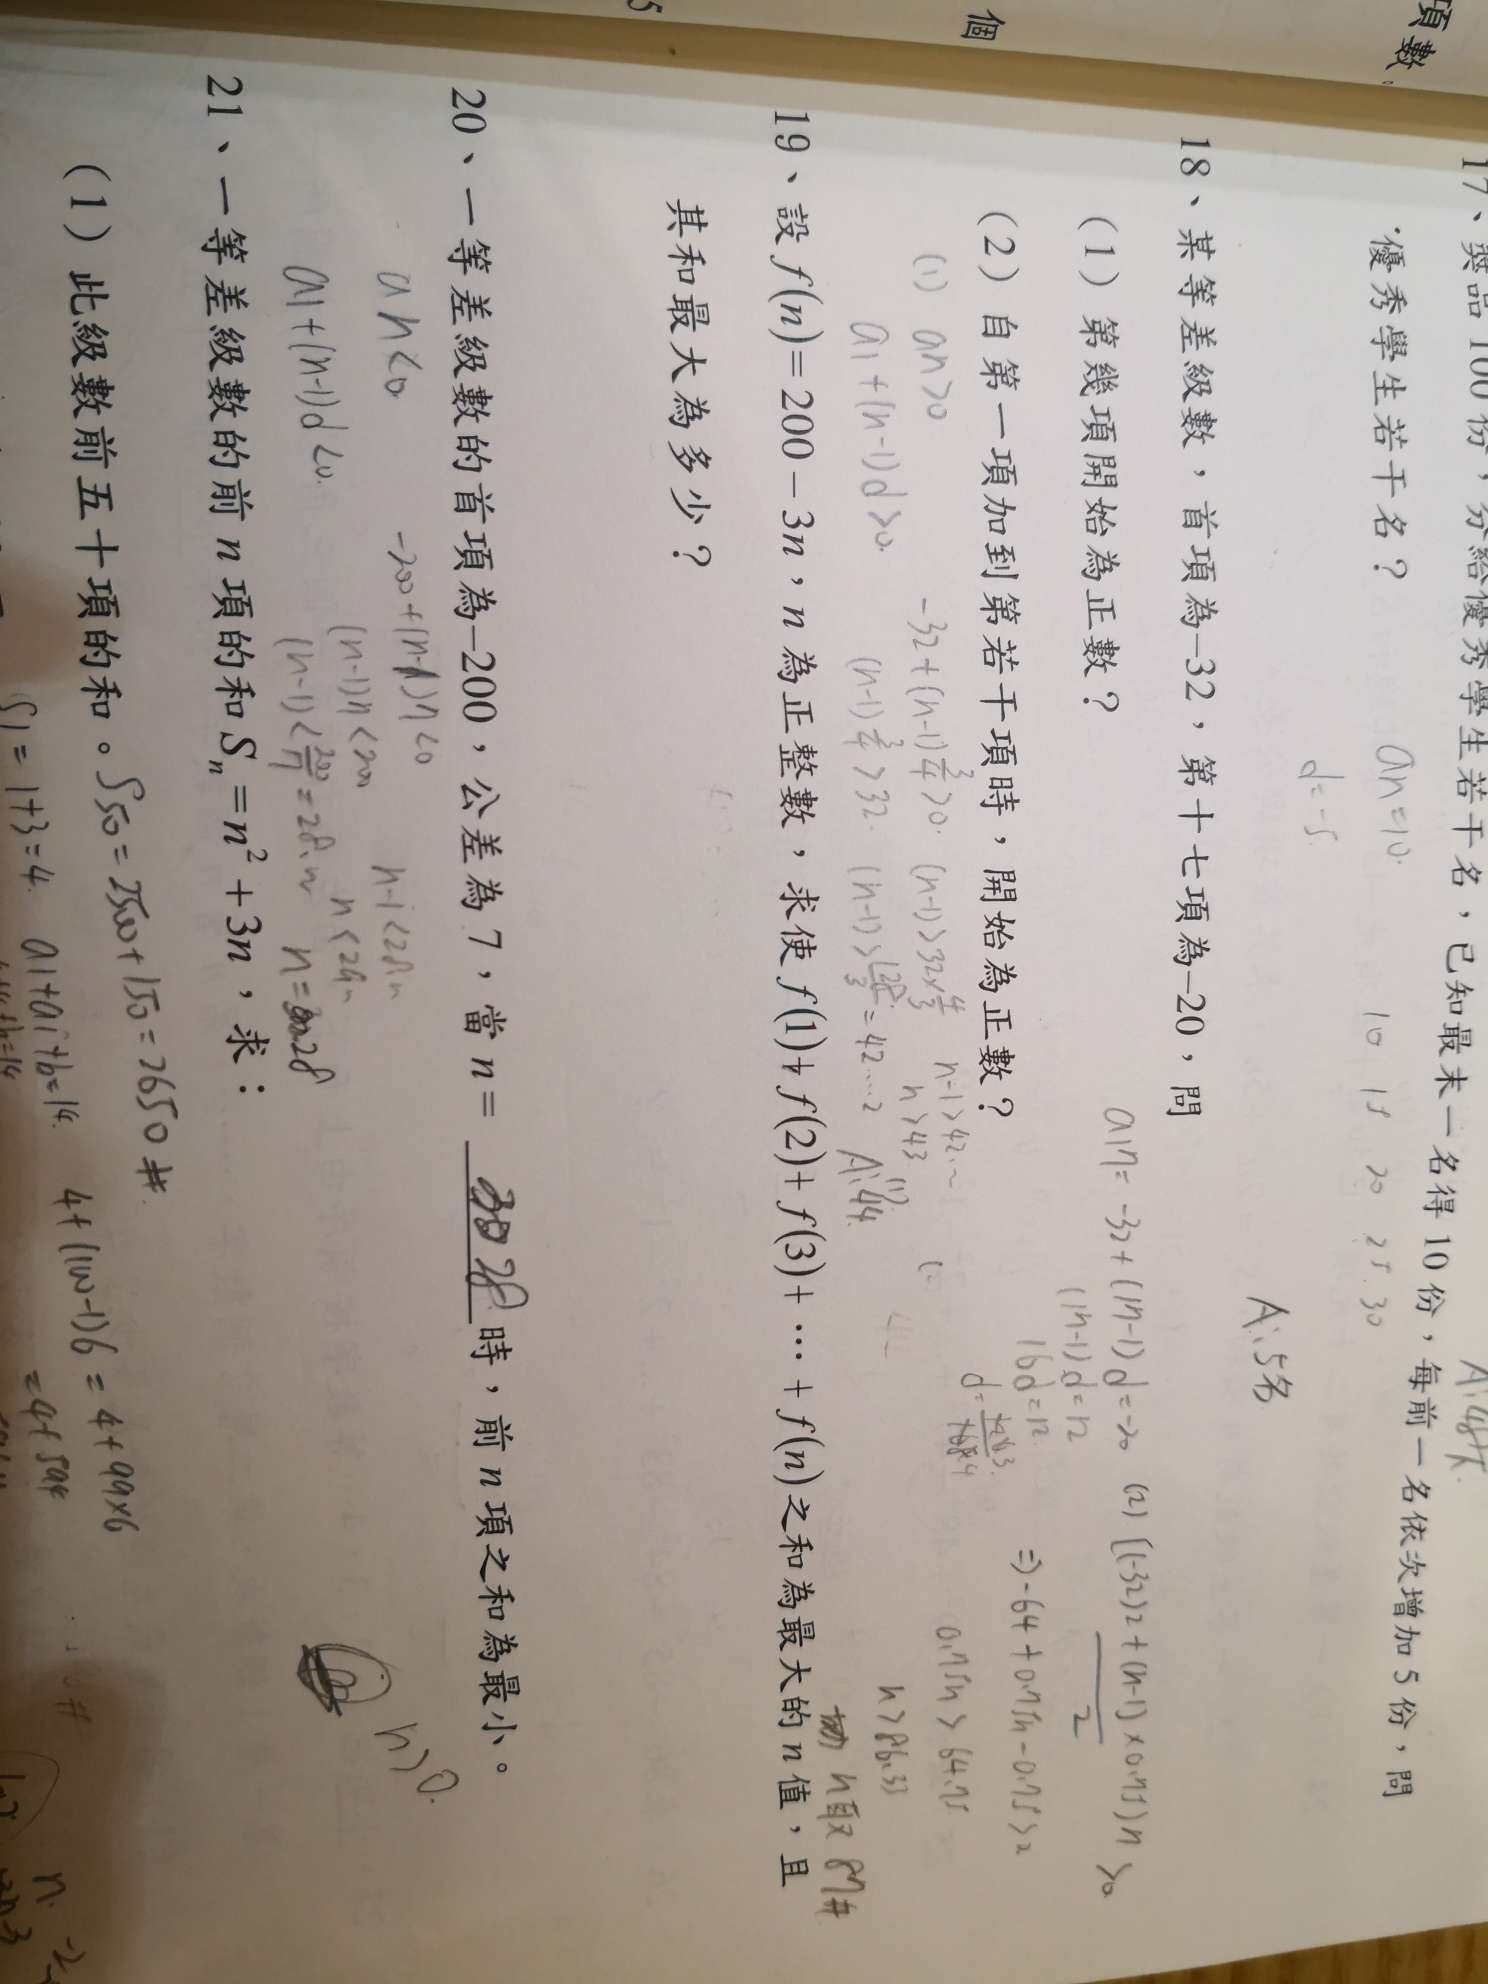 項數。
個
5
17、獎品100份，分給優秀學生若干名，已知最末一名得10份，每前一名依次增加5份，問
優秀學生若干名？
an=10.
d=-5.
10 15 20 25 30
A:5名
18、某等差級數，首項為-32，第十七項為-20，問
(1) 第幾項開始為正數？
(2) 自第一項加到第若干項時，開始為正數？
a17=-32+(17-1)d=-20
(17-1)d=12
16d=12
(2) [(-32)2+(n-1)×0.75]n / 2 >0
⇒-64+0.75n-0.75>0
0.75n>64.75
n>86.33
n取87#
(1) an>0
a1+(n-1)d>0.
-32+(n-1)3/4>0.
(n-1)3/4>32.
(n-1)>32×4/3
(n-1)>128/3=42...2
n-1>42.~
n>43
A:(1)44.
19、設 f(n)=200-3n，n 為正整數，求使 f(1)+f(2)+f(3)+⋯+f(n)之和為最大的 n 值，且
其和最大為多少？
20、一等差級數的首項為-200，公差為 7，當 n= 28 時，前 n 項之和為最小。
an<0
a1+(n-1)d<0.
-200+(n-1)7<0
(n-1)7<200
(n-1)<200/7=28.~
n-1<28.~
n<29.~
n=28
n>0.
21、一等差級數的前 n 項的和 Sn=n²+3n，求：
(1) 此級數前五十項的和。 S50=2500+150=2650#
S1=1+3=4. a1+a1+6=14. 4+(100-1)6=4+99×6
=4+594